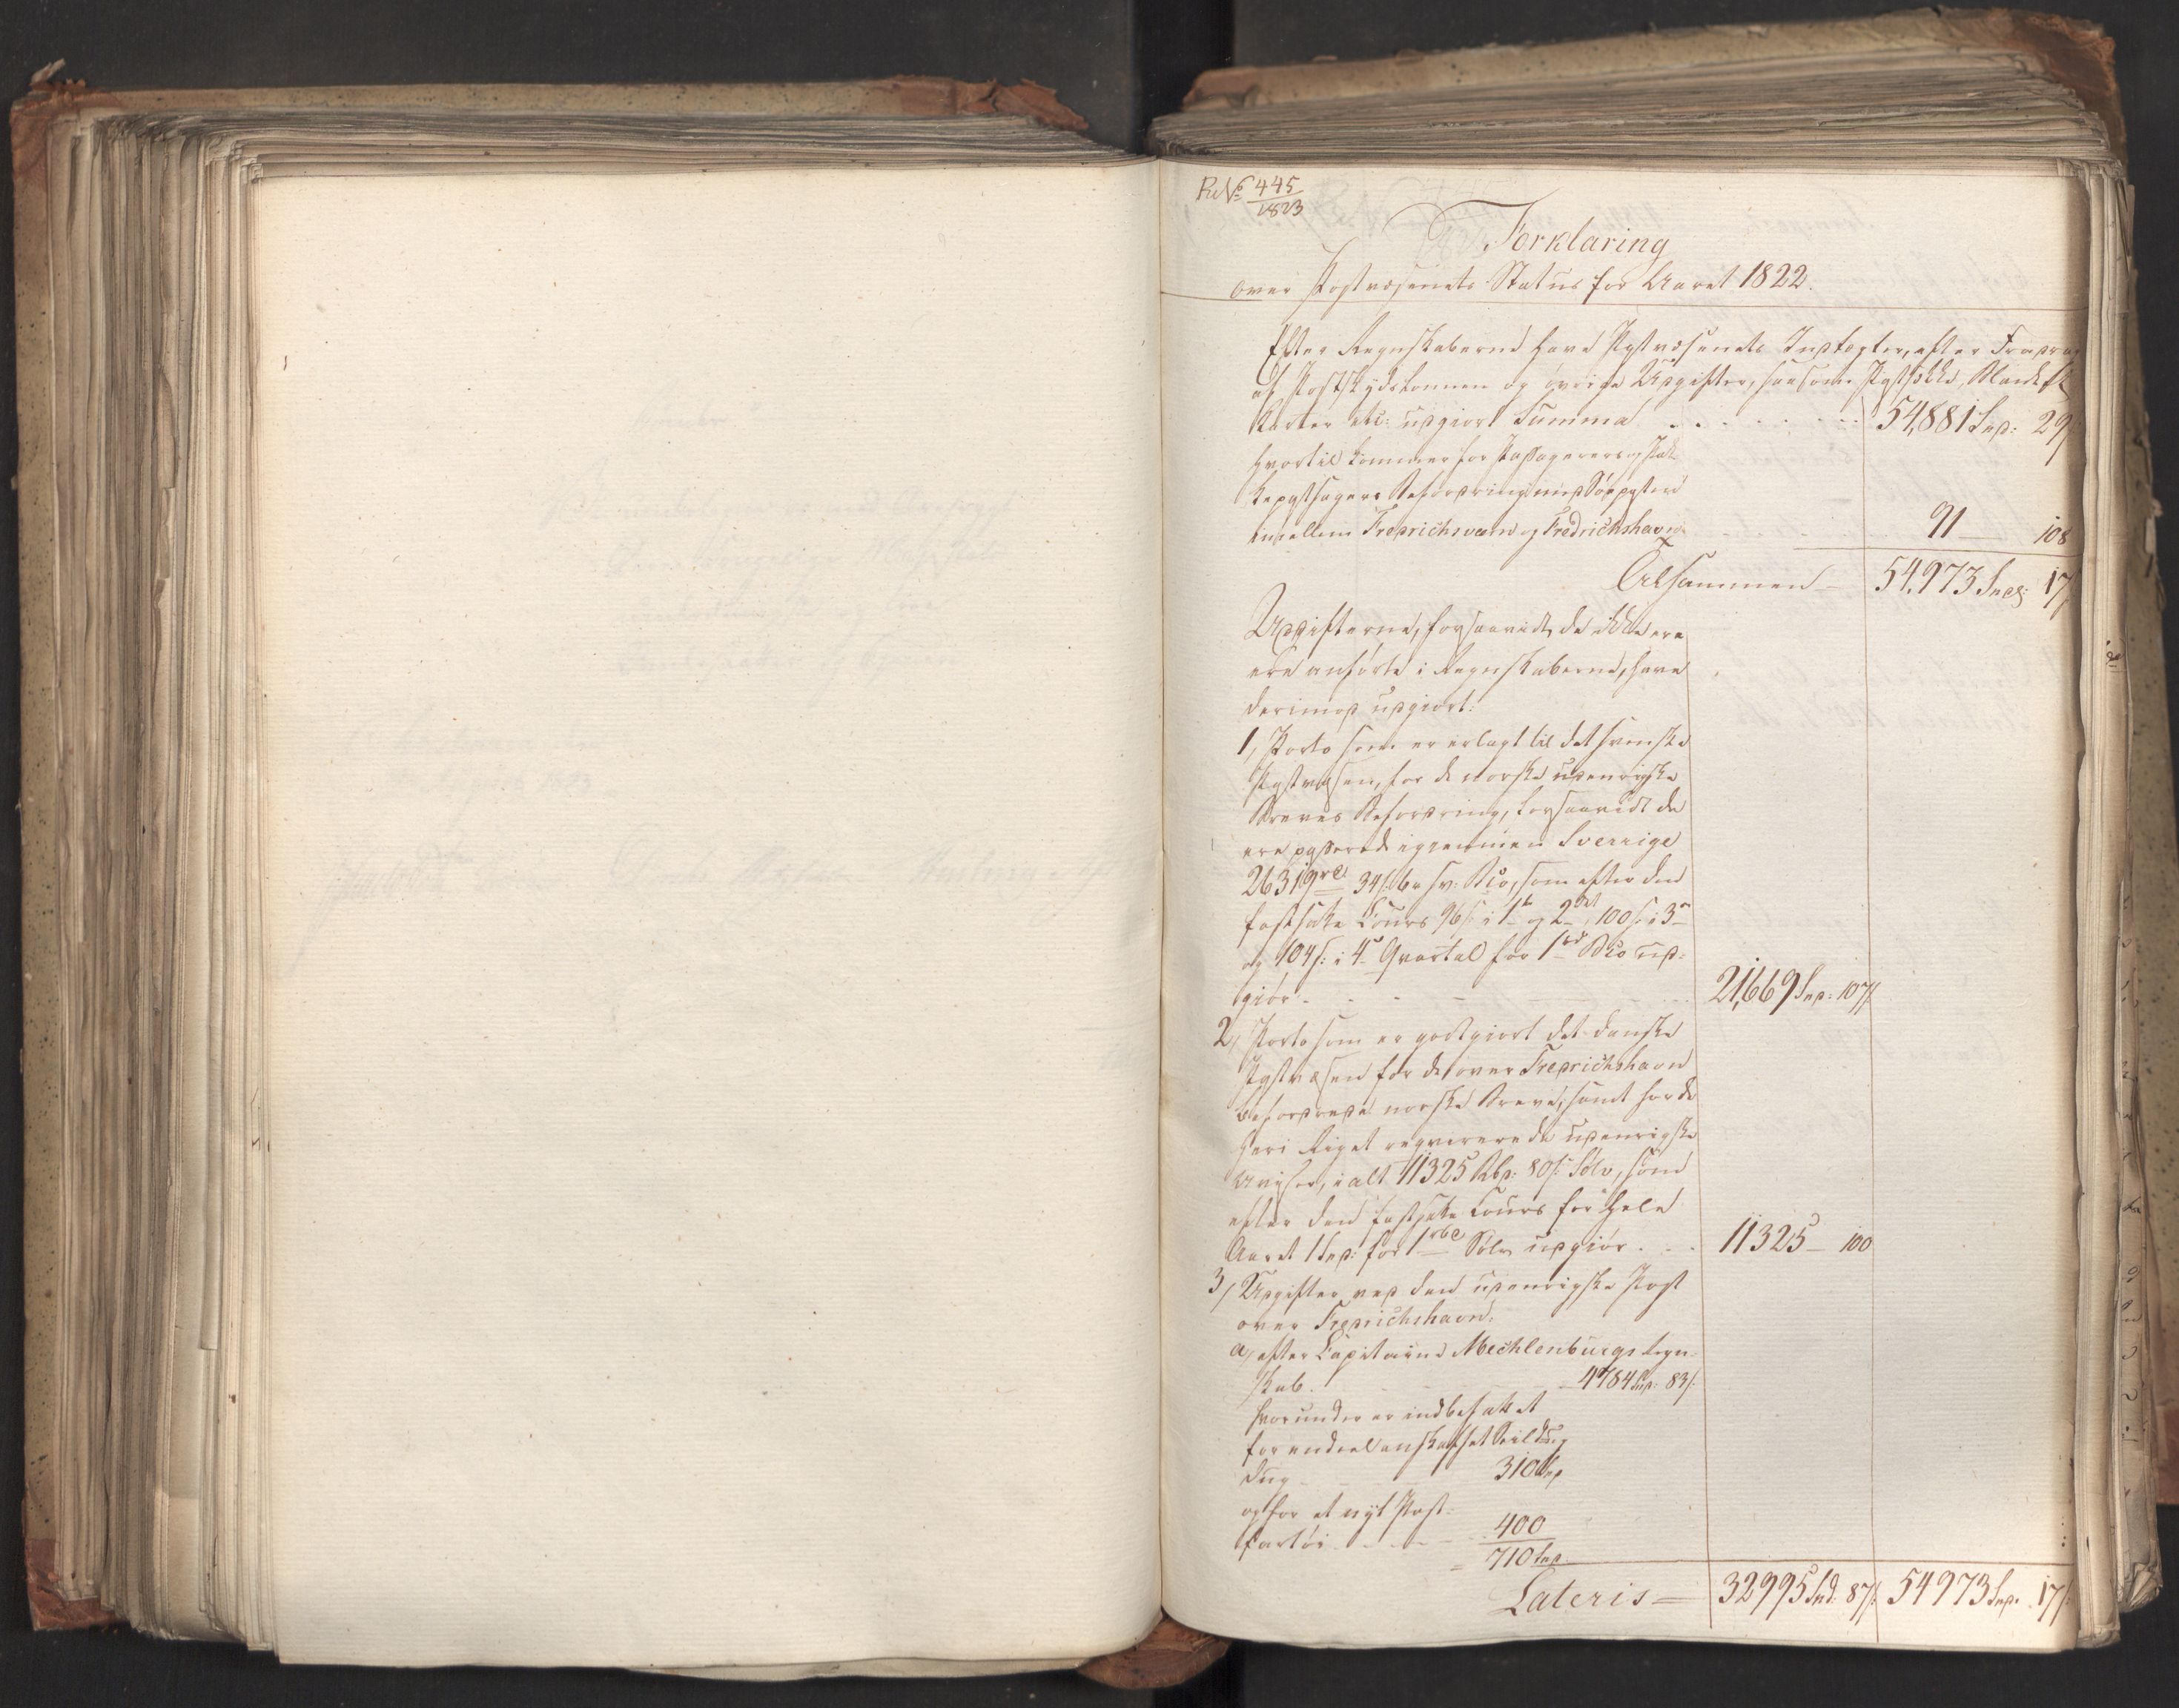 Rd No 445/1823
Forklaring
over Postvæsenets Status for Aaret 1822.
Efter Regnskaberne have Postvæsenets Indtægter, efter Fradrag
af Postskydslønnen og øvrige Udgifter, saasom Postsække, Blanket
Karter etc: udgiort Summa 54,881 Spd: 29
hvortil kommer for Passagerers og Pak-
kepostsagers Befordring med Søeposten
imellem Fredrichsværn og Fredrichshavn 91 — 108
Tilsammen — 54,973 Spd: 17
Udgifterne, forsaavidt de ikke ere
ere anførte i Regnskaberne, have
derimod udgiort:
1, Porto som er erlagt til det svenske
Postvæsen, for de norske udenrigske
Breves Befordring, forsaavidt de
ere passerede igjennem Sverrige
26319 rd 34 s: 6 sv: Bco, som efter den
fastsatte Cours 96 s: i 1te og 2det, 100 s: i 3e
og 104 s: i 4e Qvartal for 1 rd Bco ud-
giør 21,669 Spd: 107 s:
2, Porto som er godtgiort det danske
Postvæsen for de over Fredrichshavn
befordrede norske Breve, samt for de
her i Riget reqvirerede udenrigske
Aviser, i alt 11325 Rbd: 80 s: Sølv, som
efter den fastsatte Cours for hele
Aaret 1 Spd: for 1 rbd Sølv udgiør 11325 — 100
3, Udgifter ved den udenrigske Post
over Fredrichshavn:
a, efter Capitaine Mechlenburgs Regn-
skab 4784 Spd: 83 s:
hvorunder er indbefattet
for endeel anskaffet Seildug
dug 310 Spd
og for et nyt Post-
fartøi 400
= 710 Spd
Lateris = 32995 Spd. 87 s: 54973 Spd. 17 s: